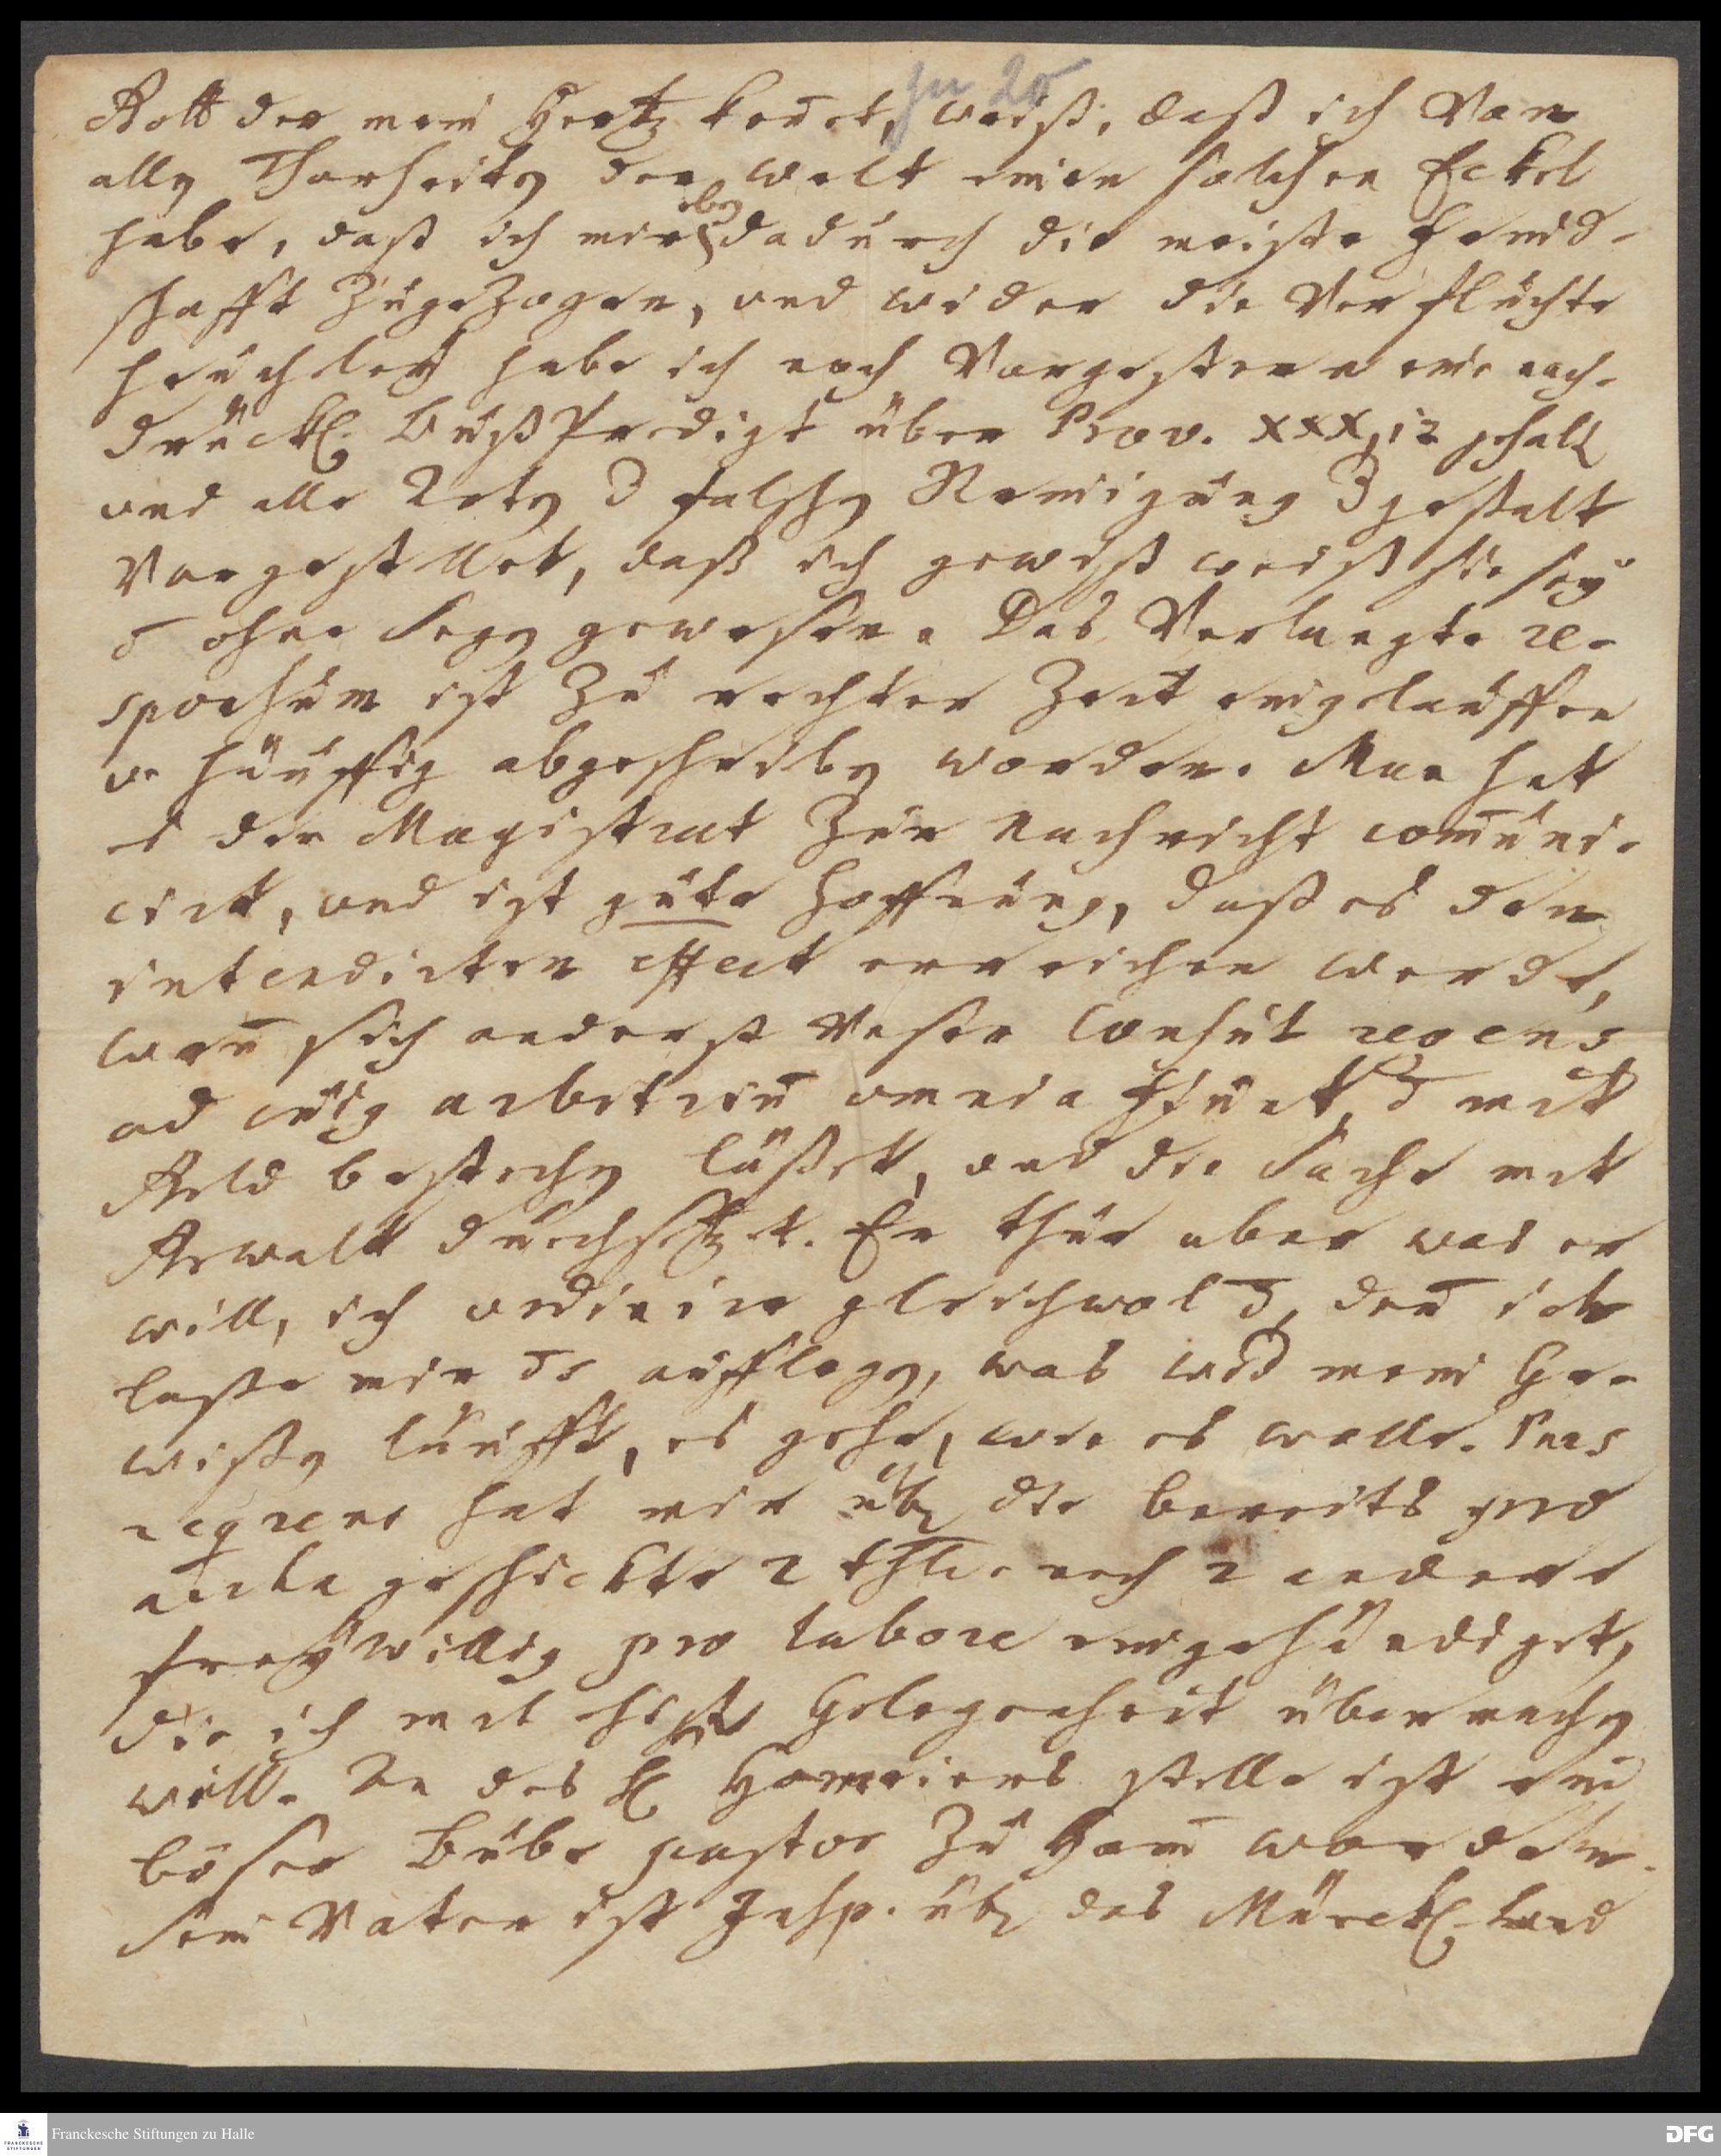 zu 20
Gott der mein Hertz kennet, weiß, daß ich Von
allen Thorheiten der Welt einen solchen Eckel
habe, daß ich mir eben dadurch die meiste Feind-
schafft zugezogen, und wider die Verfluchte
heucheley habe ich noch Vorgestern eine nach-
drückl. Bußpredigt über Prov. XXX,12 gehalt
und alle Arten d falschen Reinigung dgestalt
Vorgestellet, daß ich gewiß weiß sie sey
ohne Segen gewesen. Das Verlangte re-
sponsum ist zu rechter Zeit eingelauffen
u. häuffig abgeschrieben worden. Man hat
der Magistrat zur Nachricht com̄uni-
cirt, und ist gute Hoffnung, daß es den
intendirten effect erreichen werde,
wen̄ sich anderst unser Consul regens
ad cujus arbitriū omnia mit
Geld bestechen läßet, und die Sache mit
Gewalt durchsetzet. Er thue aber was er
will, ich ordinire gleichwol, den̄ ich
lasse mir aufflegen, was wid mein Ge-
wissen läufft, es gehe, wie es wolle.
hat mir üb die bereits pro
geschickte 2 thlr. noch 2 andere
freywillig pro labore eingehändiget,
die ich mit Gelegenheit übermachen
will. An des H. stelle ist ein
böser Bube pastor zu Ham̄ worden.
Sein Vater ist Insp. üb das Märckl. Land
Franckesche Stiftungen zu Halle
DFG